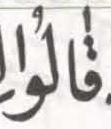 قَالُوا